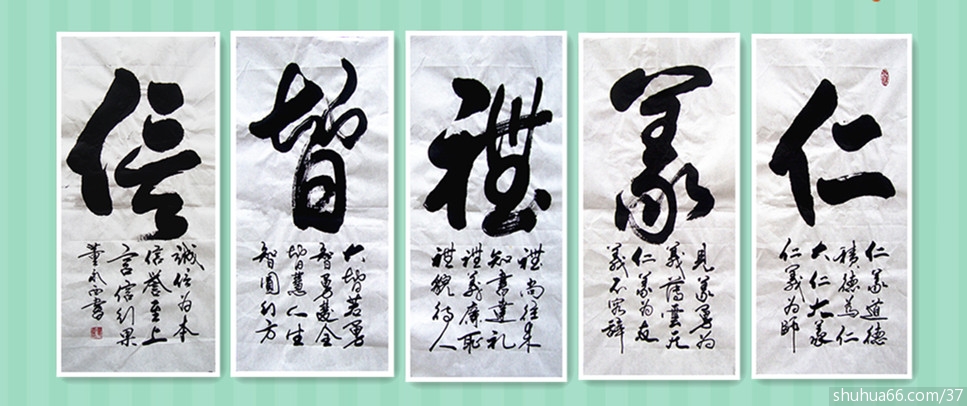 仁
仁義道德
積德為仁
大仁大義
仁義為師
義
見義勇為
義薄雲天
仁義為友
義不容辭
禮
禮尚往來
知書達礼
禮義廉恥
禮貌待人
智
大智若愚
智勇雙全
智慧人生
智圓行方
信
誠信為本
信譽至上
言信行果
shuhua66.com/37